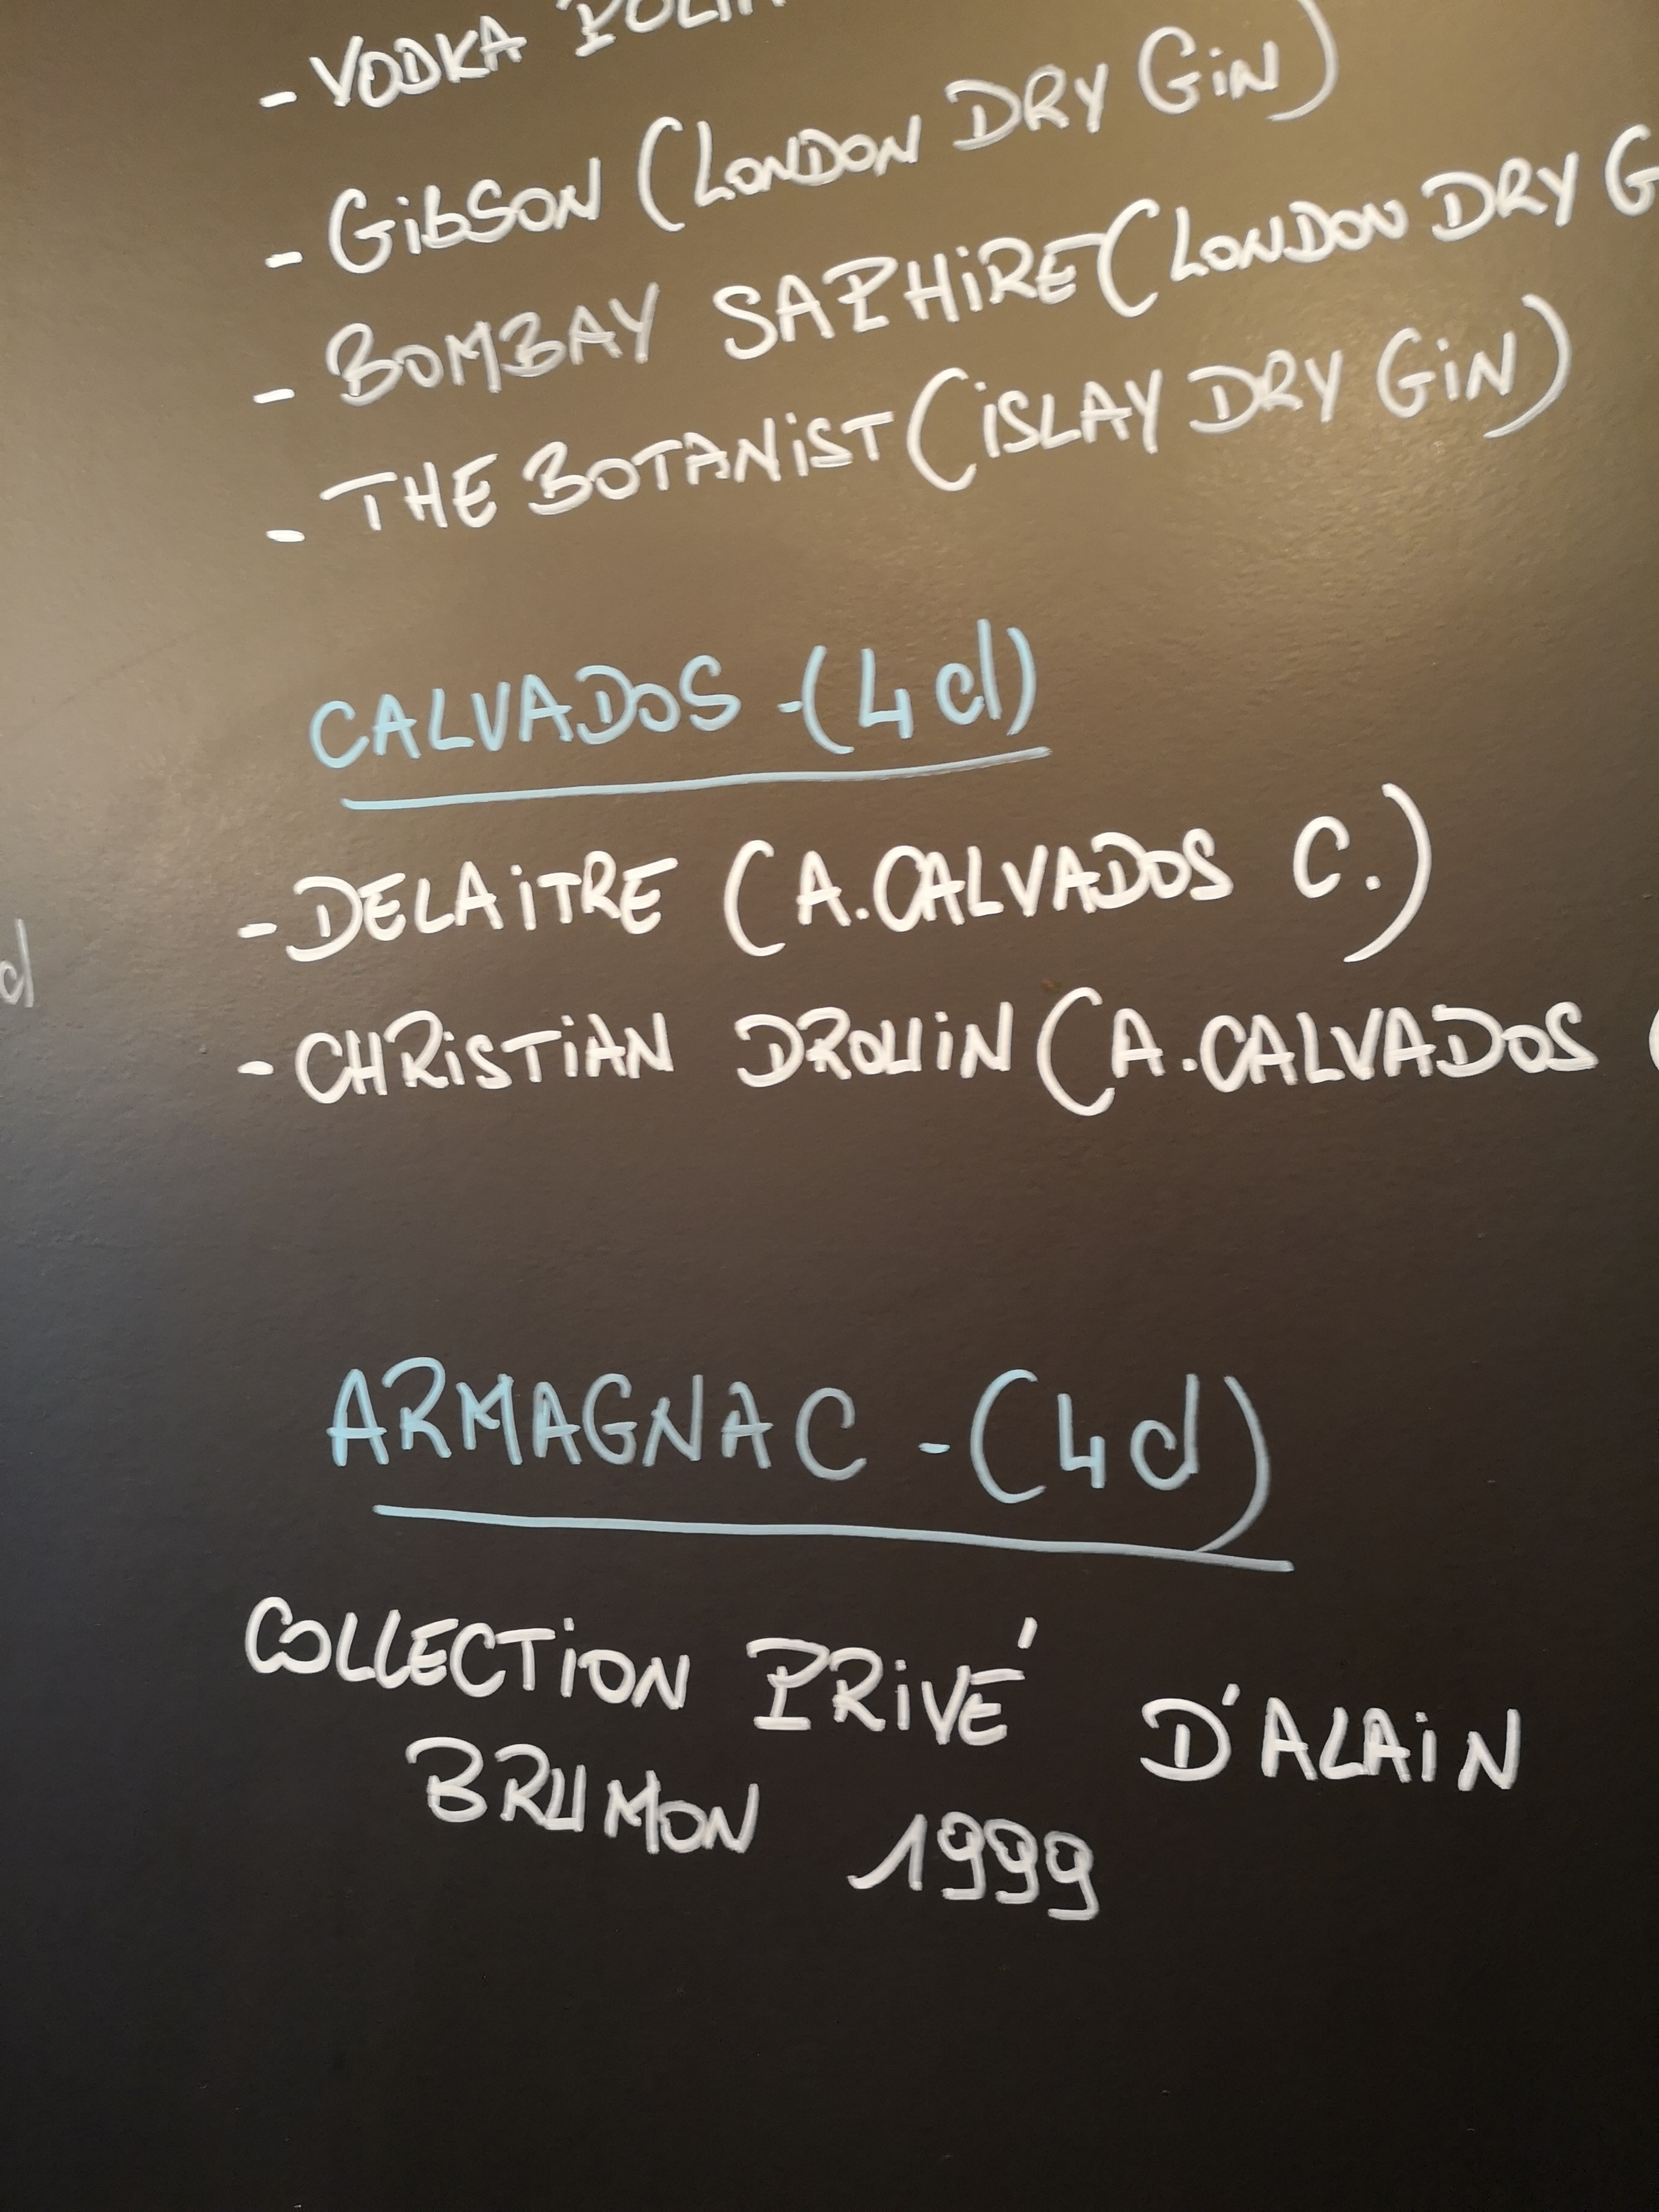 - VODKA
- GIBSON (LONDON DRY GIN)
- BOMBAY SAPHIRE (LONDON DRY G
- THE BOTANIST (ISLAY DRY GIN)
CALVADOS - (4 cl)
- DELAITRE (A. CALVADOS C.)
cl
- CHRISTIAN DROUIN (A. CALVADOS (
ARMAGNAC - (4 cl)
COLLECTION PRIVÉ D'ALAIN
BRUMON 1999